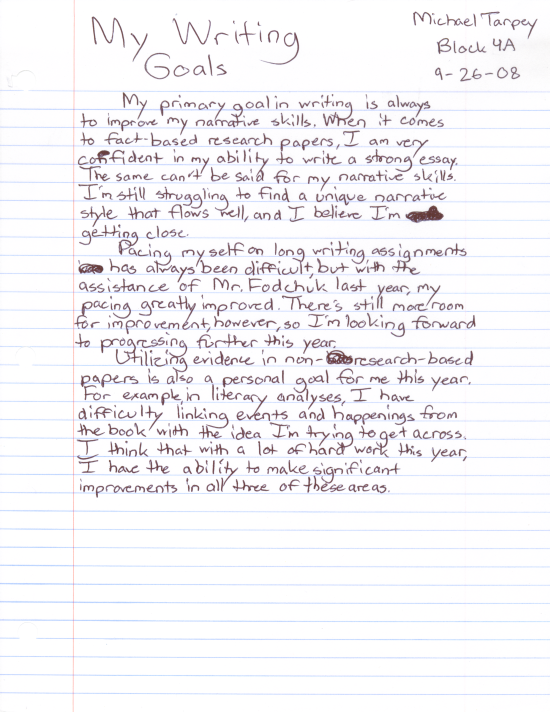 My Writing
Goals
Michael Tarpey
Block 4A
9-26-08
My primary goal in writing is always
to improve my narrative skills. When it comes
to fact-based research papers, I am very
confident in my ability to write a strong essay.
The same can't be said for my narrative skills.
I'm still struggling to find a unique narrative
style that flows well, and I believe I'm
getting close.
Pacing myself on long writing assignments
has always been difficult, but with the
assistance of Mr. Fodchuk last year, my
pacing greatly improved. There's still more room
for improvement, however, so I'm looking forward
to progressing further this year.
Utilizing evidence in non-research-based
papers is also a personal goal for me this year.
For example, in literary analyses, I have
difficulty linking events and happenings from
the book with the idea I'm trying to get across.
I think that with a lot of hard work this year,
I have the ability to make significant
improvements in all three of these areas.